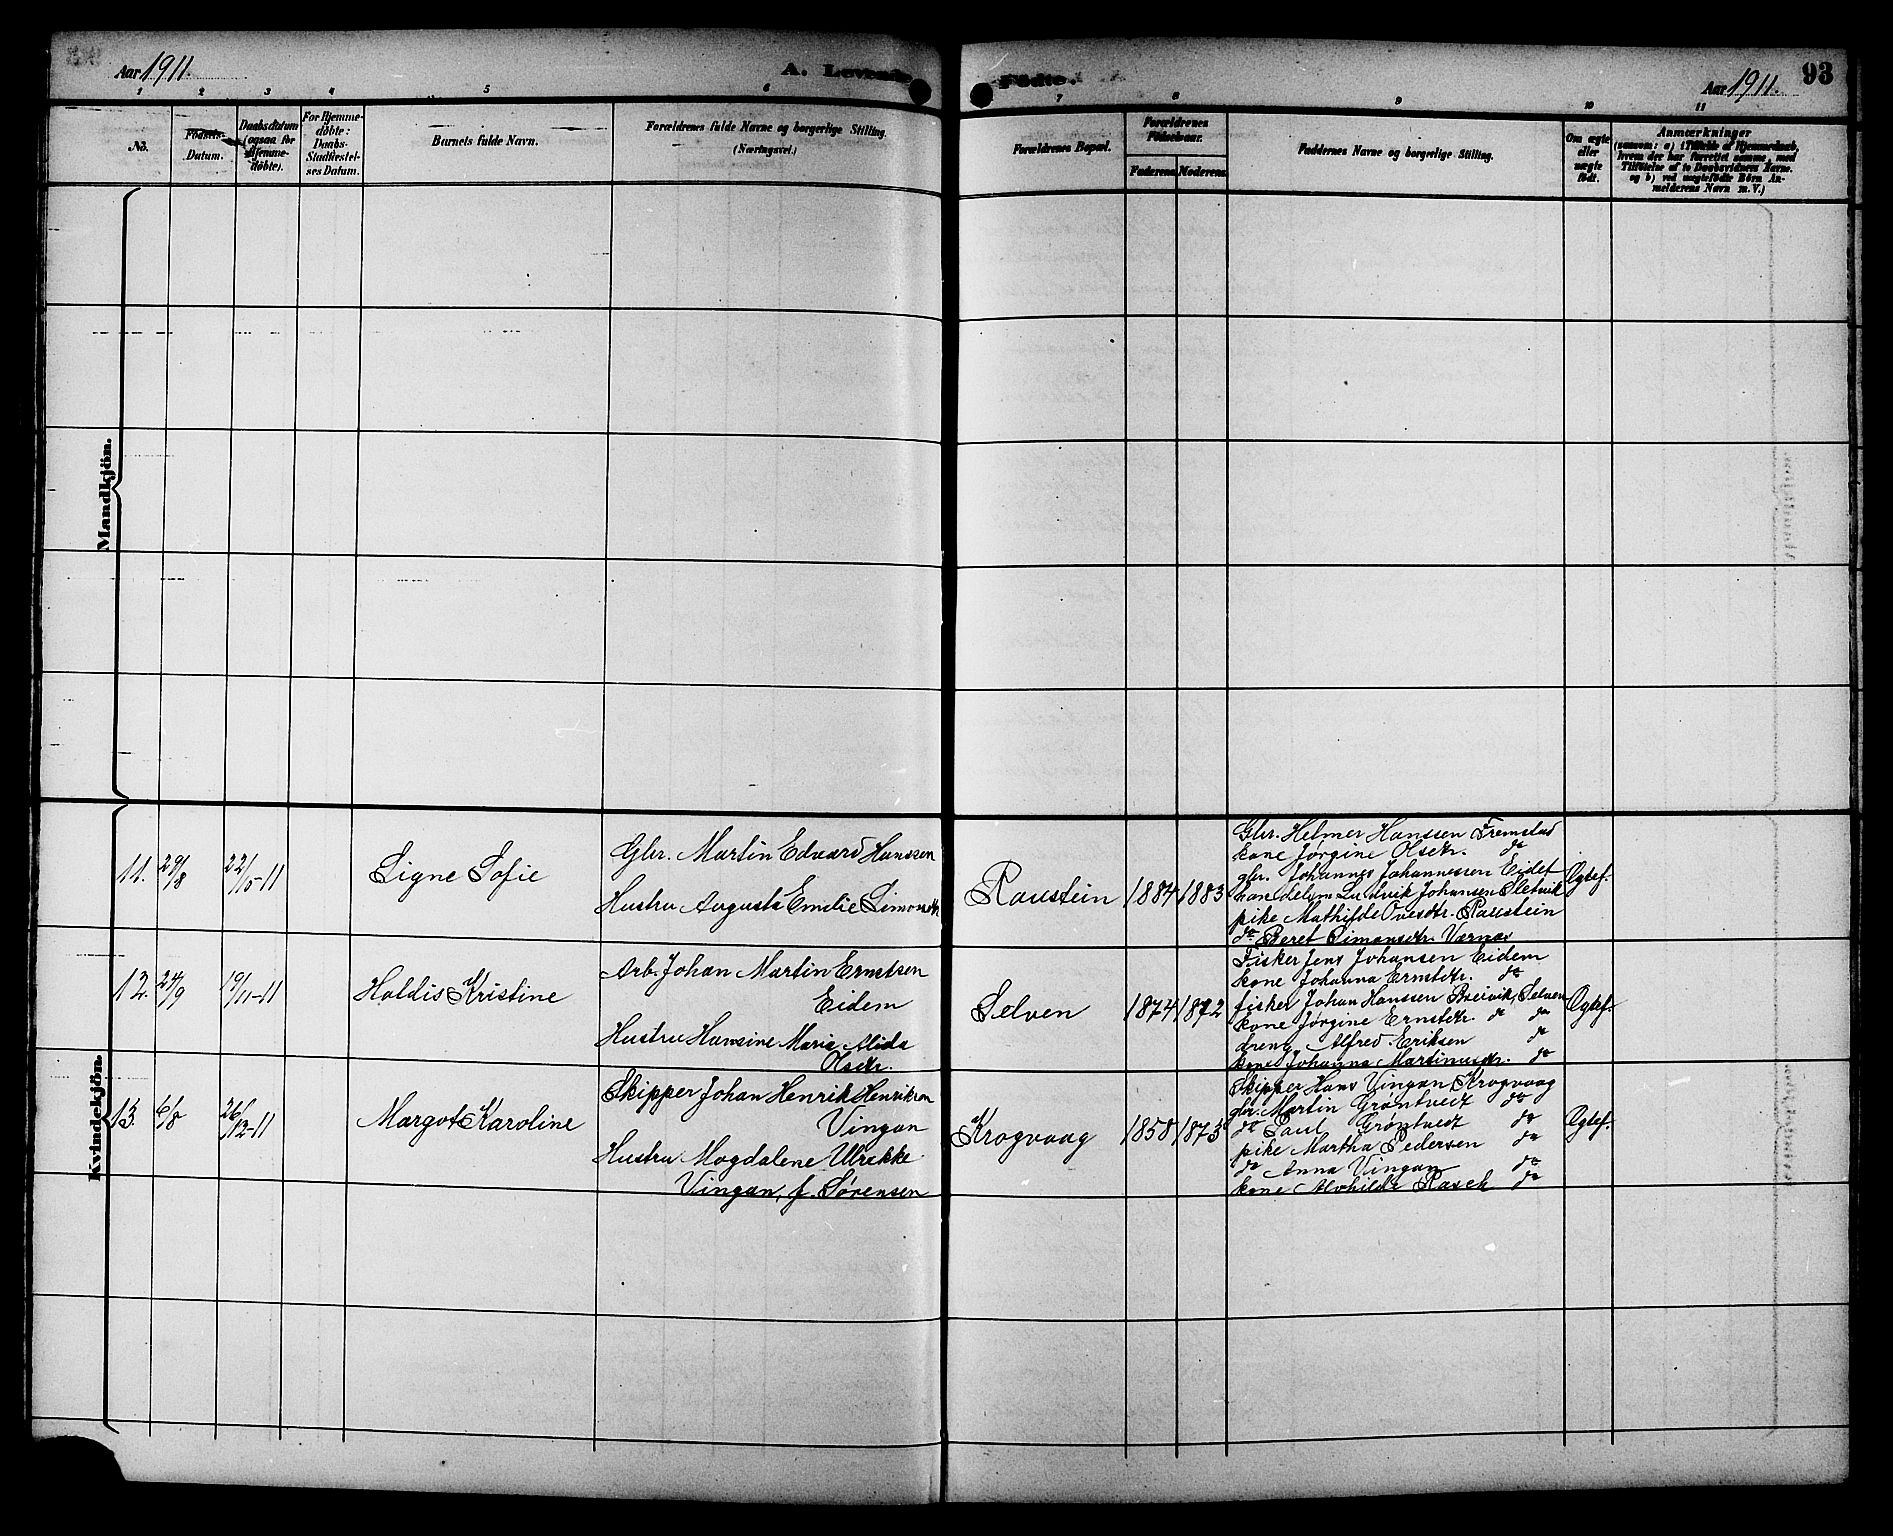 Aar 1911.
A. Levende
Födte.
Aar 1911.
93
1
2
3
4
5
6
7
8
9
10
11
No.
Fødsels-
Datum.
Daabsdatum
(ogsaa for
Hjemme-
døbte).
For Hjemme-
døbte:
Daabs-
Stadfæstel-
ses Datum.
Barnets fulde Navn.
Forældrenes fulde Navne og borgerlige Stilling.
(Næringsvei.)
Forældrenes Bopæl.
Forældrenes
Fødselsaar.
Faderens
Moderens
Faddernes Navne og borgerlige Stilling.
Om ægte
eller
uægte
født.
Anmærkninger
(saasom: a) i Tilfælde af Hjemmedaab,
hvem der har forrettet samme, med
Tilføielse af to Daabsvidners Navne.
og b) ved uægtefødte Børn An-
melderens Navn m. V.)
Mandkjön.
Kvindekjön.
11.
29/8
22/10-11
Signe Sofie
Gbr. Martin Edvard Hanssen
Hustru Augusta Emelie Simonsdtr.
Raustein
1884
1883
Gbr. Helmer Hanssen Fremstad
kone Jørgine Olsdtr. do
gbr. Johannes Johannessen Eidet
handelsm Ludvik Johansen Sletvik
pike Mathilde Ovesdtr. Raustein
do Beret Simonsdtr. Værnes
Egtef.
12.
24/9
19/11-11
Haldis Kristine
Arb. Johan Martin Ernstsen
Eidem
Hustru Hansine Marie Alida
Olsdtr.
Selven
1874
1872
Fisker Jens Johansen Eidem
kone Johanna Ernstdtr. do
fisker Johan Hanssen Breivik, Selven
kone Jørgine Ernstdtr. do do
dreng Alfred Eriksen do
kone Johanna Martinusdtr. do
Egtef.
13.
6/8
26/12-11
Margot Karoline
Skipper Johan Henrik Henriksen
Vingan
Hustru Magdalene Ulrekke
Vingan, f. Sørensen
Krogvaag
1858
1873
Skipper Hans Vingan, Krogvaag
gbr. Martin Grøntvedt do
do Paul Grøntvedt do
pike Martha Pedersen do
do Anna Vingan do
kone Alvhilde Rasch do
Egtef.